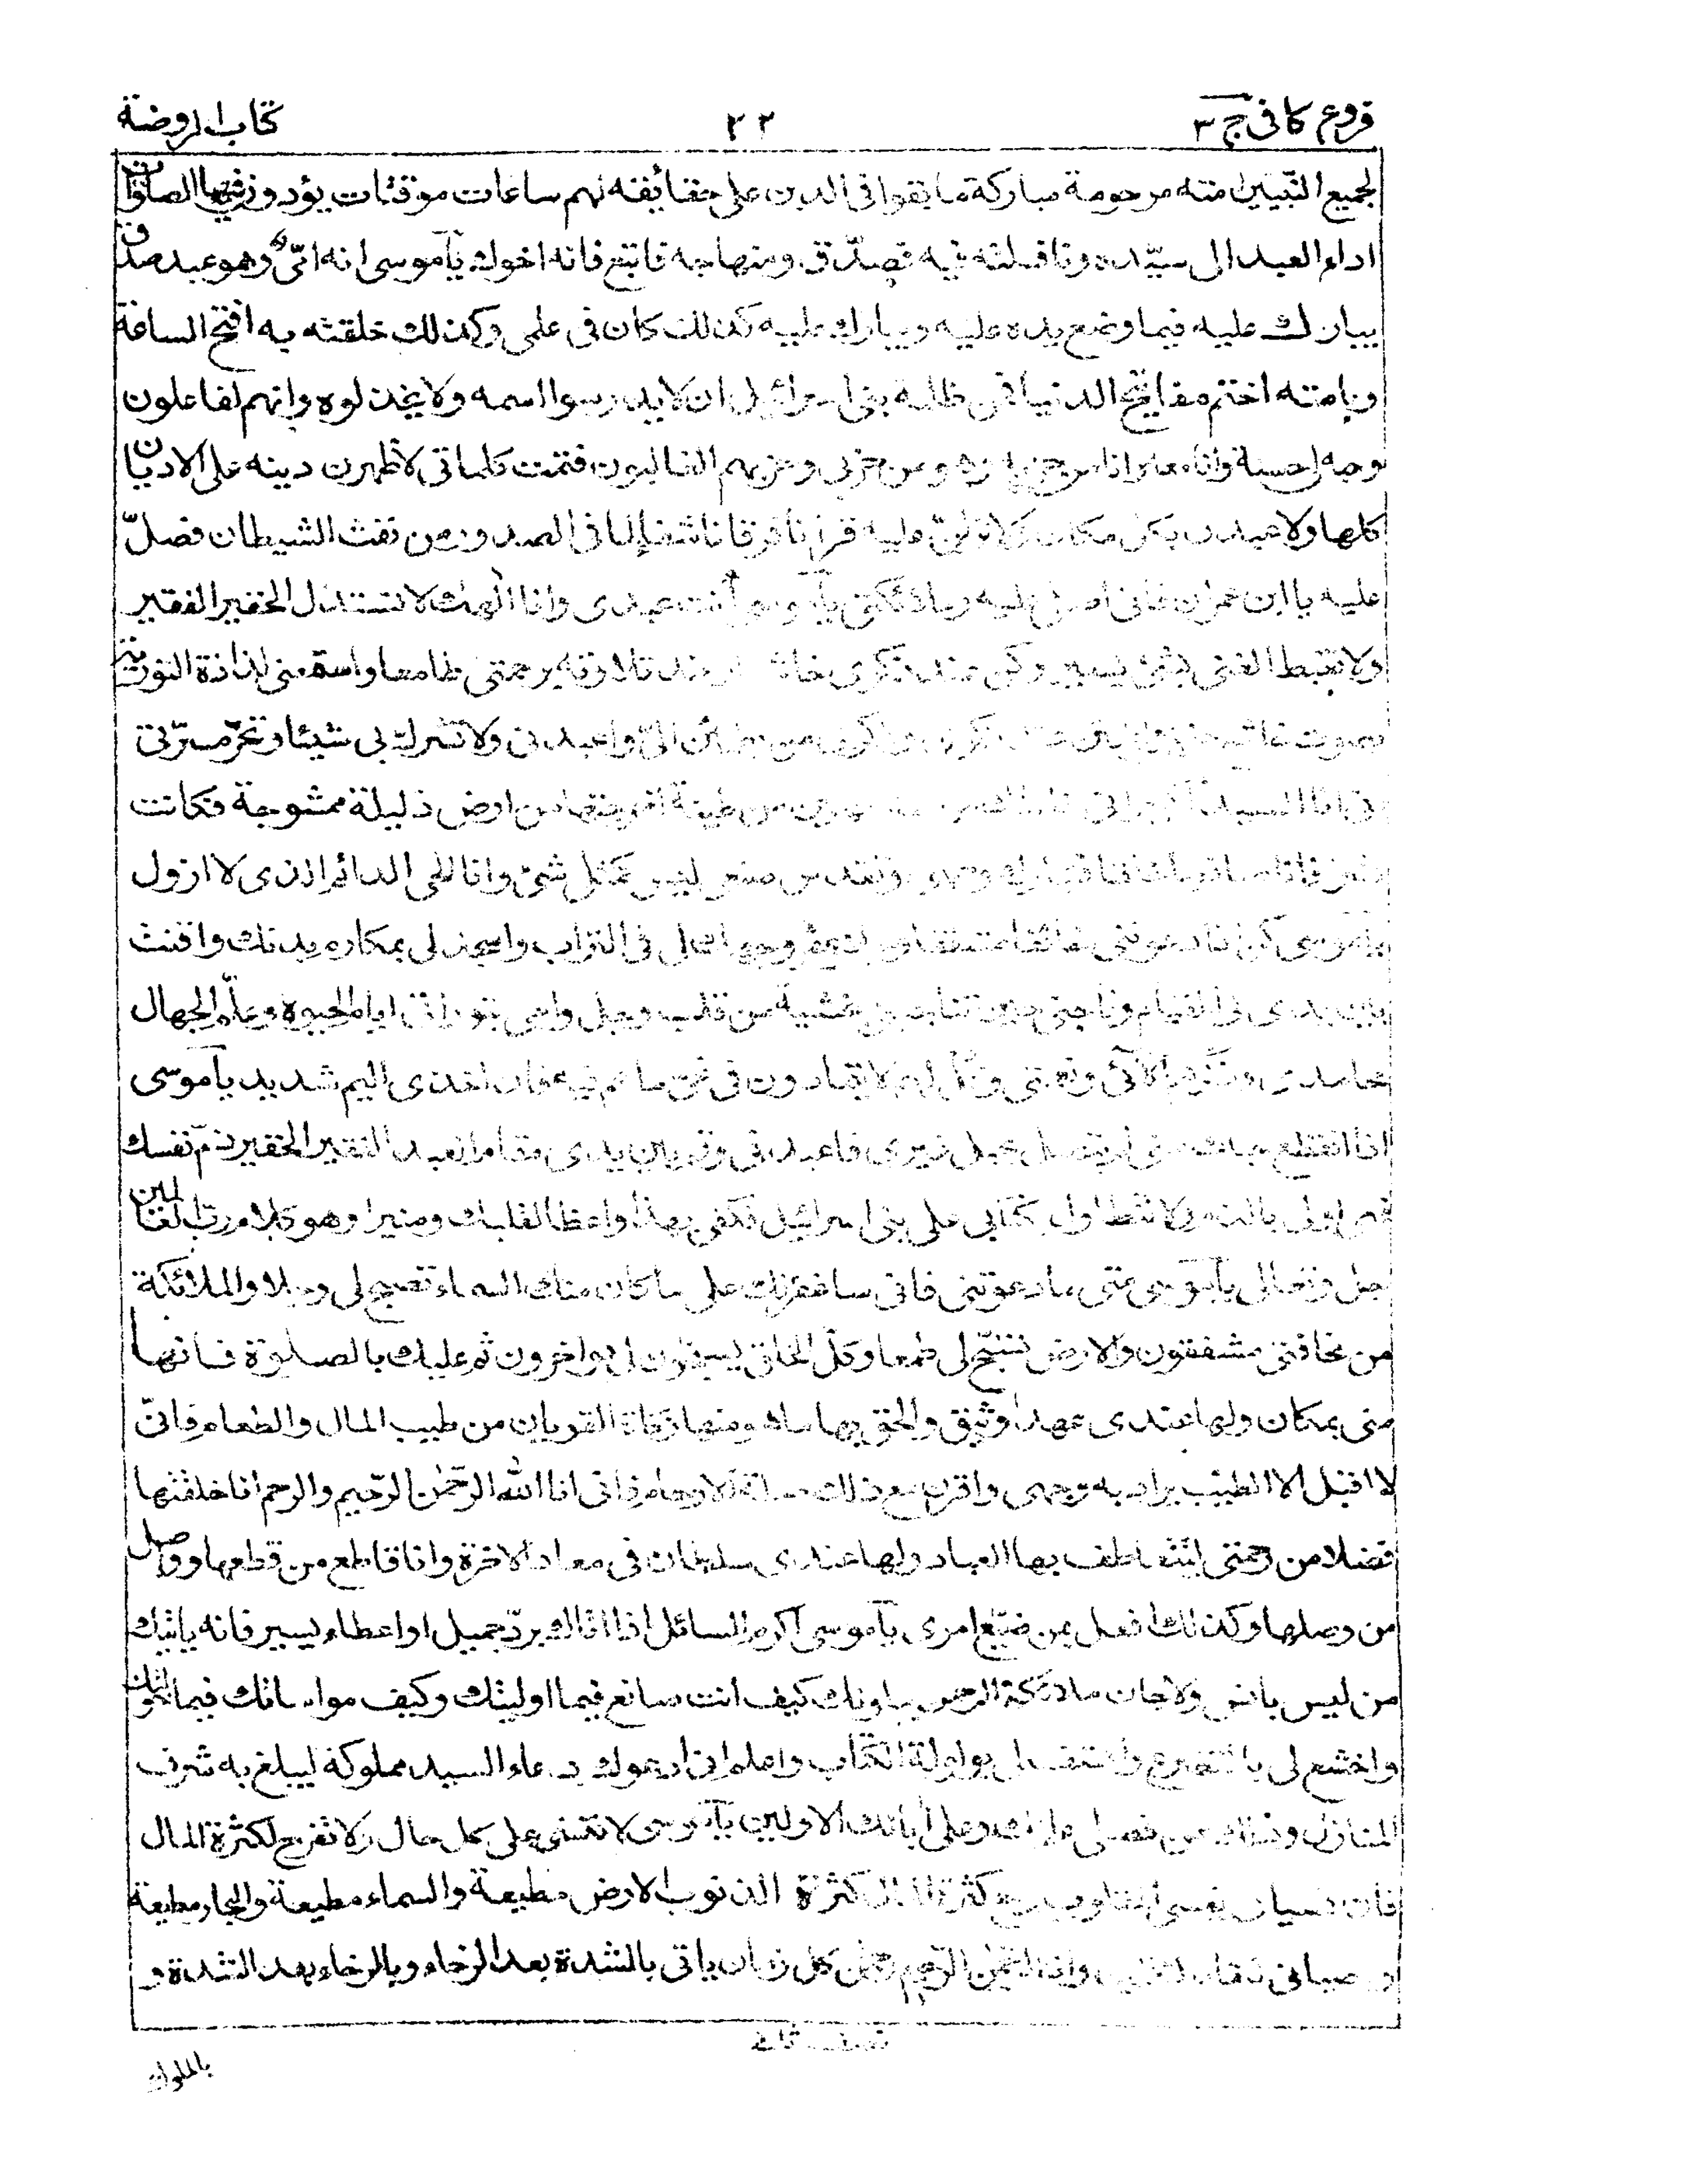 فروع كافى ج ٣
٢٢
كتاب الروضة
لجميع النبيين امته مرحومة مباركة ما بقوا فى الدين على حقائقه لهم ساعات موقتات يؤدون فيها الصلوات
اداء العبد الى سيّده ونافلته فبه فصدّق ومنهاجه فاتبع فانه اخوك يا موسى انه امّى وهو عبد صدق
يبارك عليه فيما وضع يده عليه ويبارك عليه كذلك كان فى علمى وكذلك خلقته به افتح الساعة
وبامته اختم مفاتيح الدنيا فمر ظلمة بنى اسرائيل ان لا يدرسوا اسمه ولا يخذلوه وانهم لفاعلون
وحبه لى حسنة وانا معه وانا من حزبه وهو من حزبى وحزبهم الغالبون فتمت كلماتى لاظهرن دينه على الاديان
كلها ولاعبدن بكل مكان ولانزلنّ عليه قرآنا فرقانا شفاء لما فى الصدور من نفث الشيطان فصلّ
عليه يا ابن عمران فانى اصلى عليه وملائكتى يا موسى انت عبدى وانا الهك لا تستذل الحقير الفقير
ولا تغبط الغنى بشئ يسير وكن عند ذكرى خاشعا وعند تلاوته برحمتى طامعا واسمعنى لذاذة التورية
بصوت خاشع حزين اطمئن عند ذكرى وذكر بى من يطمئن الىّ واعبدنى ولا تشرك بى شيئا وتحرّ مسرّتى
انى انا السيد الكبير انى خلقتك من نطفة من ماء مهين من طينة اخرجتها من ارض ذليلة ممشوجة فكانت
بشرا فانا صانعها خلقا فتبارك وجهى وتقدس صنعى ليس كمثلى شئ وانا الحى الدائم الذى لا ازول
يا موسى كن اذا دعوتنى خائفا مشفقا وجلا عفّر وجهك لى فى التراب واسجد لى بمكارم بدنك واقنت
بين يدى فى القيام وناجنى حين تناجينى بخشية من قلب وجل واحى بتوراتى ايام الحيوة وعلّم الجهال
محامدى وذكّرهم آلائى ونعمتى وقل لهم لا يتمادون فى غى ما هم فيه فان اخذى اليم شديد يا موسى
اذا انقطع حبلك منى لم يتصل بحبل غيرى فاعبدنى وقم بين يدى مقام العبد الفقير الحقير ذمّ نفسك
فهى اولى بالذم ولا تتطاول بكتابى على بنى اسرائيل فكفى بهذا واعظا لقلبك ومنيرا وهو كلام رب العالمين
جل وتعالى يا موسى متى ما دعوتنى فانى ساغفر لك على ما كان منك السماء تسبح لى وجلا والملائكة
من مخافتى مشفقون والارض تسبّح لى طمعا وكلّ الخلق يسبحون لى داخرون ثم عليك بالصلوة فانها
منى بمكان ولها عندى عهد وثيق والحق بها ما هو منها زكاة القربان من طيب المال والطعام فانىّ
لا اقبل الا الطيب يراد به وجهى واقرن مع ذلك صلة الارحام فانى انا الله الرّحمن الرّحيم والرحم انا خلقتها
فضلا من رحمتى ليتعاطف بها العباد ولها عندى سلطان فى معاد الاخرة وانا قاطع من قطعها وواصل
من وصلها وكذلك افعل بمن ضيّع امرى يا موسى اكرم السائل اذا اتاك بردّ جميل او اعطاء يسير فانه يأتيك
من ليس بانس ولا جان ملائكة الرحمن يبلونك كيف انت صانع فيما اوليتك وكيف مواساتك فيما خولتك
واخشع لى بالتضرع واهتف لى بولولة الكتاب واعلم انى ادعوك دعاء السيد مملوكه ليبلغ به شرف
المنازل وذلك من فضلى عليك وعلى آبائك الاولين يا موسى لا تنسنى على كل حال ولا تفرح لكثرة المال
فان نسيانى يقسى القلوب ومع كثرة المال كثرة الذنوب الارض مطيعة والسماء مطيعة والبحار مطيعة
وعصيانى شقاء الثقلين وانا الرّحمن الرّحيم رحمن كل زمان ياتى بالشدة بعد الرخاء وبالرخاء بعد الشدة و
بالملوك